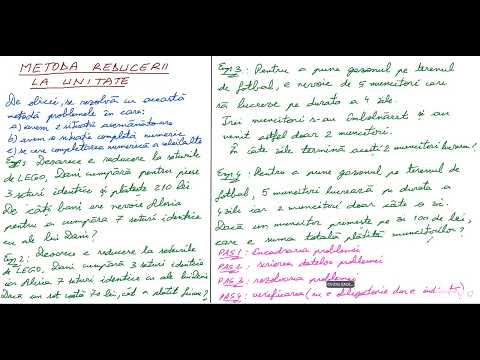 METODA REDUCERII
LA UNITATE
De obicei, se rezolvă cu această
metodă problemele în care:
a) avem 2 situații asemănătoare
b) avem o situație completă numeric
c) se cere completarea numerică a celeilalte
Ex. 1: Deoarece e reducere la seturile
de LEGO, Dani cumpără pentru piese
3 seturi identice și plătește 210 lei
De câți bani are nevoie Alexia
pentru a cumpăra 7 seturi identice
cu ale lui Dani?
Ex. 2: Deoarece e reducere la seturile
de LEGO, Dani cumpără 3 seturi identice
iar Alexia 7 seturi identice cu ale lui Dani
Dacă un set costă 70 lei, cât a plătit fiecare?
Ex. 3: Pentru a pune gazonul pe terenul
de fotbal, e nevoie de 5 muncitori care
să lucreze pe durata a 4 zile.
Trei muncitori s-au îmbolnăvit și au
venit astfel doar 2 muncitori.
În câte zile termină acești 2 muncitori lucrarea?
Ex. 4: Pentru a pune gazonul pe terenul de
fotbal, 5 muncitori lucrează pe durata a
4 zile iar 2 muncitori doar câte o zi.
Dacă un muncitor primește pe zi 100 de lei,
care e suma totală plătită muncitorilor?
PAS 1: Encadrarea problemei
PAS 2: scrierea datelor problemei
PAS 3: rezolvarea problemei
PAS 4: verificarea (nu e obligatorie dar e